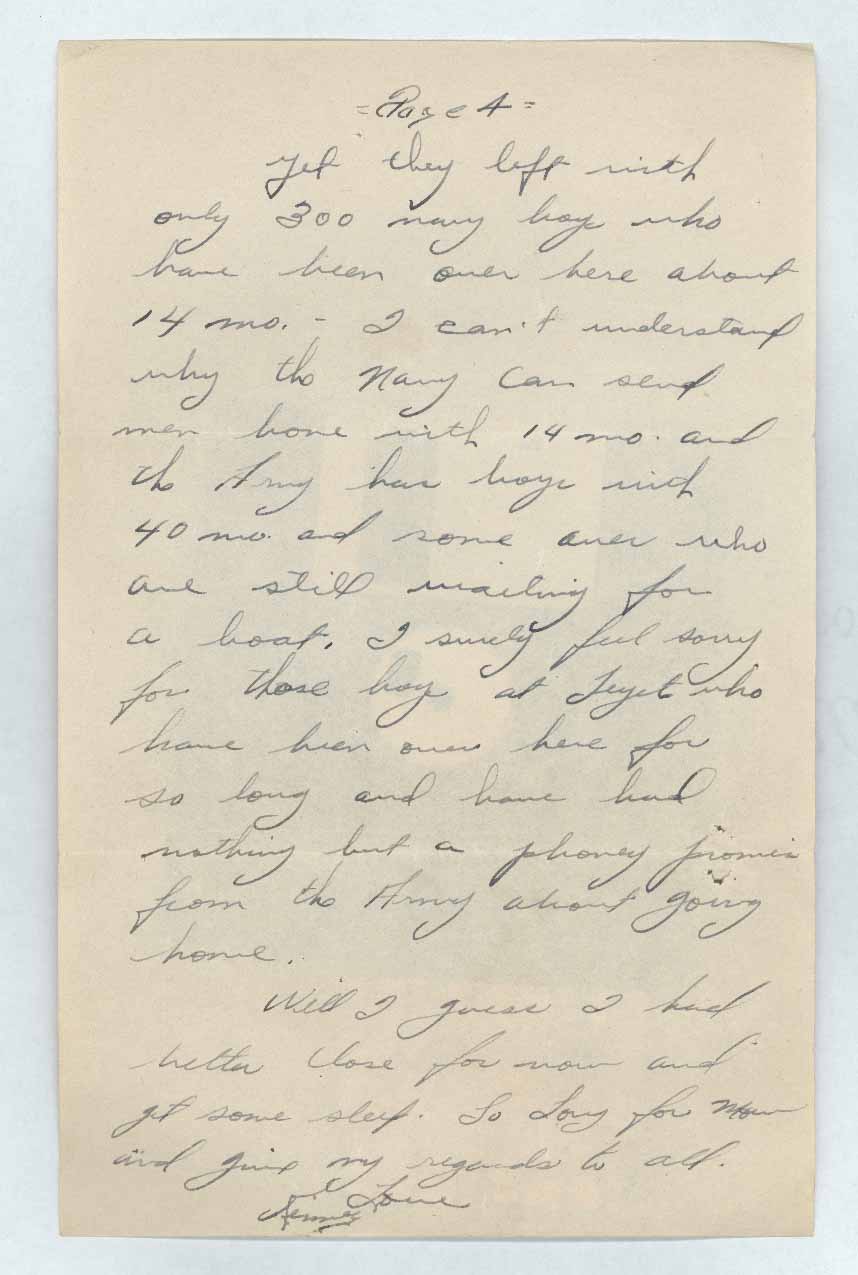 = Page 4 =
Yet they left with
only 300 navy boys who
have been over here about
14 mo. - I can't understand
why the Navy can send
men home with 14 mo. and
the Army has boys with
40 mo. and some over who
are still waiting for
a boat. I surely feel sorry
for those boys at Leyte who
have been over here for
so long and have had
nothing but a phoney promise
from the Army about going
home.
Well I guess I had
better close for now and
get some sleep. So Long for now
and give my regards to all.
Love